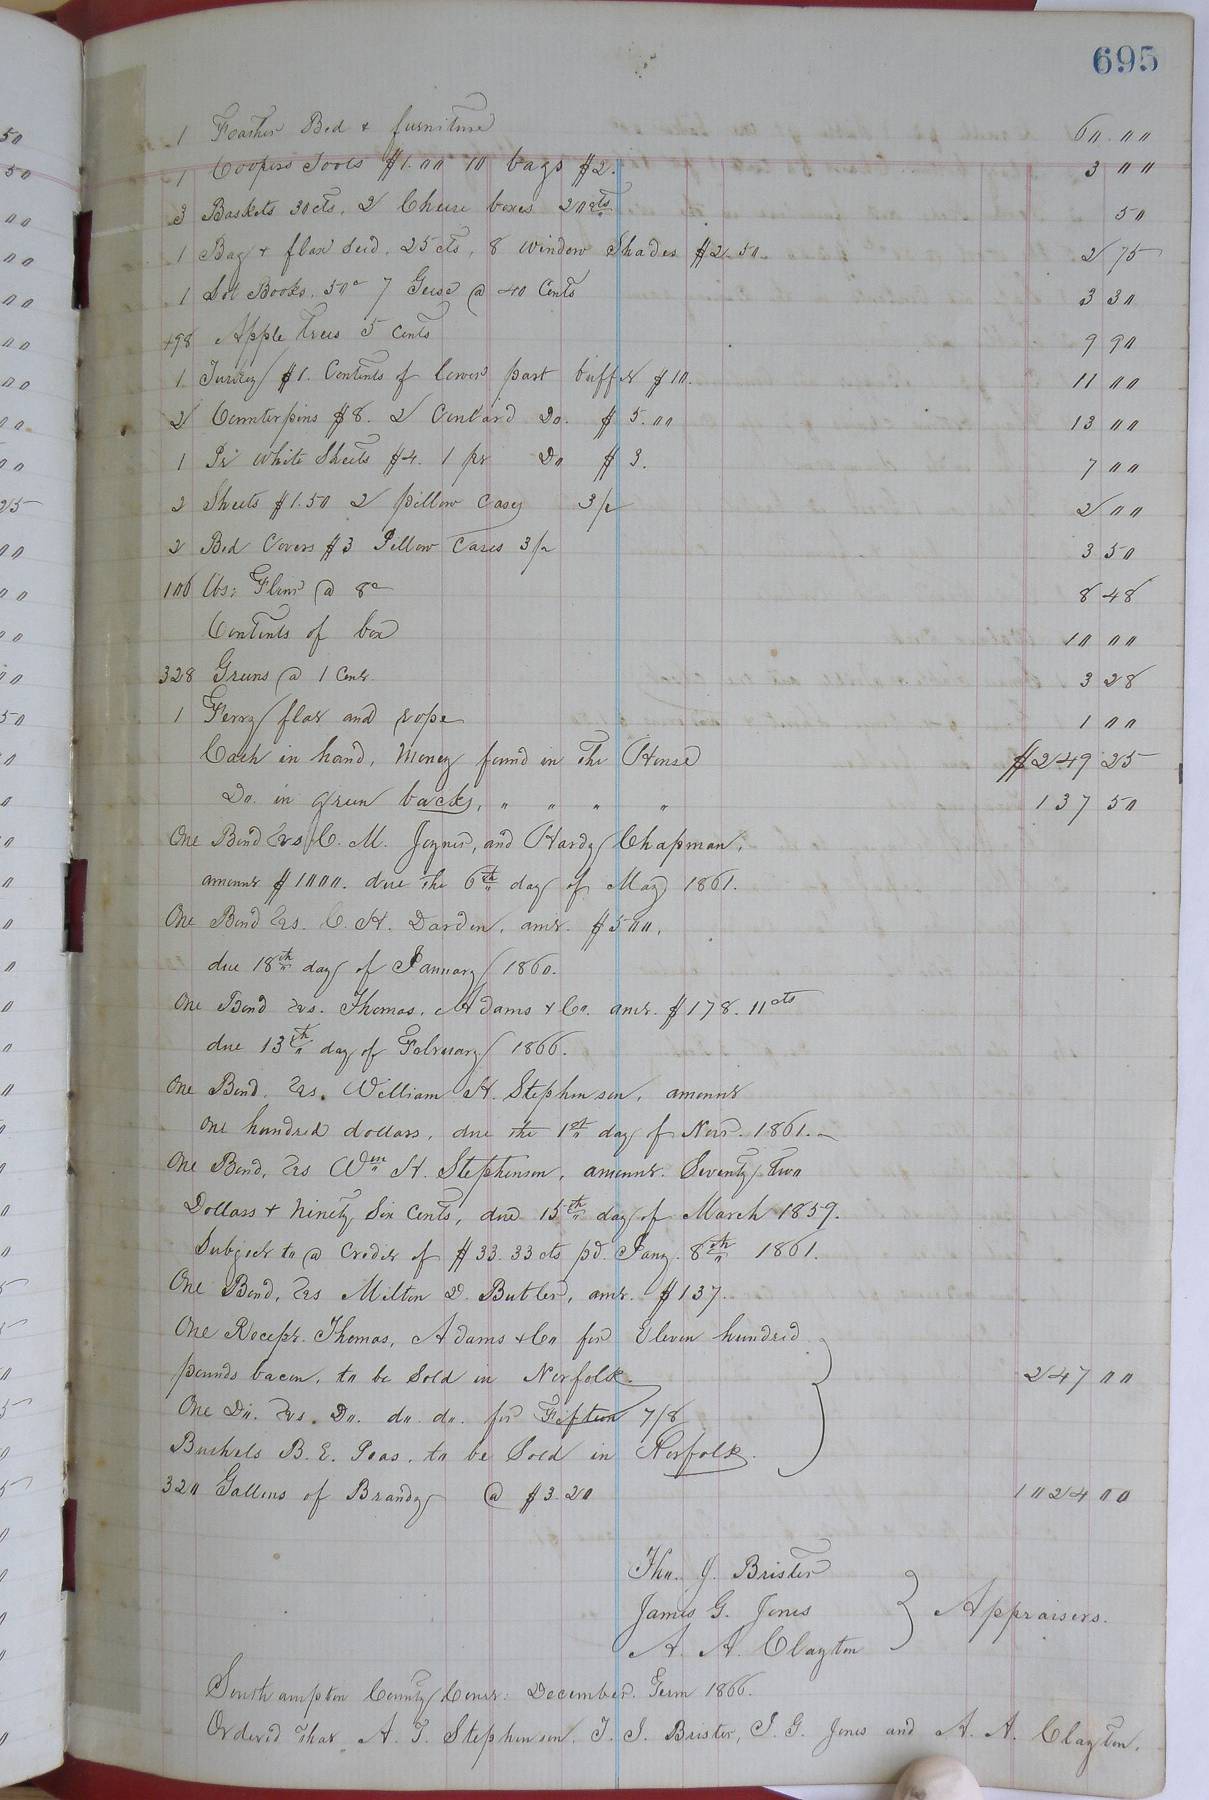 695
1 Feather Bed & furniture 60.00
1 Coopers Tools $1.00 10 bags $2. 3 00
3 Baskets 30cts, 2 Cheese boxes 20cts 50
1 Bag & flax seed, 25cts, 8 window Shades $2.50. 2 75
1 Lot Books. 50c 7 Geese @ 40 Cents 3 30
198 Apple Trees 5 Cents 9 90
1 Turkey $1. Contents of lower part buffet $10. 11 00
2 Counterpins $8. 2 Do. $5.00 13 00
1 Pr white Sheets $4. 1 pr Do $3. 7 00
2 Sheets $1.50 2 pillow Cases 3/ 2 00
2 Bed Covers $3 Pillow Cases 3/ 3 50
106 lbs: @ 8c 8 48
Contents of box 10 00
328 Greens @ 1 Cent. 3 28
1 Ferry flat and rope 1 00
Cash in hand, Money found in the House $249 25
Do. in green backs, " " " " 137 50
One Bond vs C. M. Joyner, and Hardy Chapman,
amount $1000. due the 6th day of May 1861.
One Bond vs. C. H. Darden, amt. $500,
due 18th day of January 1860.
One Bond vs. Thomas, Adams & Co. amt. $178.11cts
due 13th day of February 1866.
One Bond, vs. William H. Stephenson, amount
One hundred dollars, due the 1st day of Novr. 1861.—
One Bond, vs Wm H. Stephenson, amount. Seventy Two
Dollars & Ninety Six Cents, due 15th day of March 1859.
Subject to a Credit of $33.33cts pd. Jany. 8th 1861.
One Bond, vs Milton D. Butler, amt. $137.
One Recept. Thomas, Adams & Co for Eleven hundred
pounds bacon, to be Sold in Norfolk. 247 00
One Do. vs. Do. do. do. for Fifteen 7/8
Bushels B. E. Peas, to be Sold in Norfolk.
320 Gallons of Brandy @ $3.20 1024 00
Tho. J. Brister
James G. Jones } Appraisers.
A. A. Clayton
Southampton County Court: December Term 1866.
Ordered that A. T. Stephenson, T. J. Brister, J. G. Jones and A. A. Clayton,